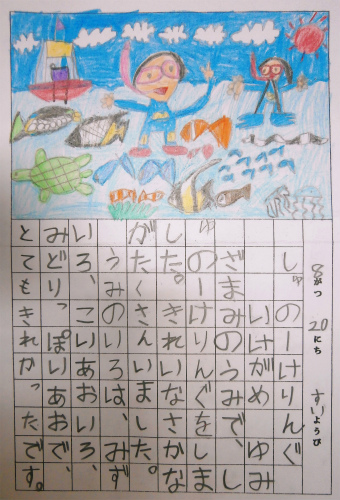 8がつ 20にち すいようび
しゅのーけりんぐ
いけがめ ゆみ
ざまみのうみで、し
ゅのーけりんぐをしま
した。きれいなさかな
がたくさんいました。
うみのいろは、みず
いろ、こいあおいろ、
みどりっぽいあおで、
とてもきれかったです。